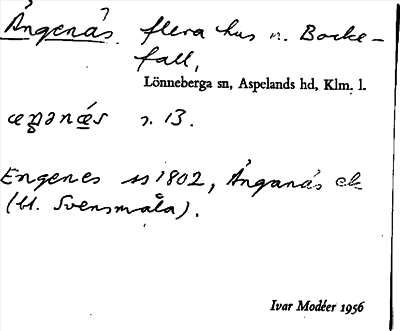 Ängenäs flera hus n. Bocke-
fall,
Lönneberga sn, Aspelands hd, Klm. l.
s. 13.
Engenes 1802, Ånganäs ek
(bl. Svensmåla).
Ivar Modéer 1956